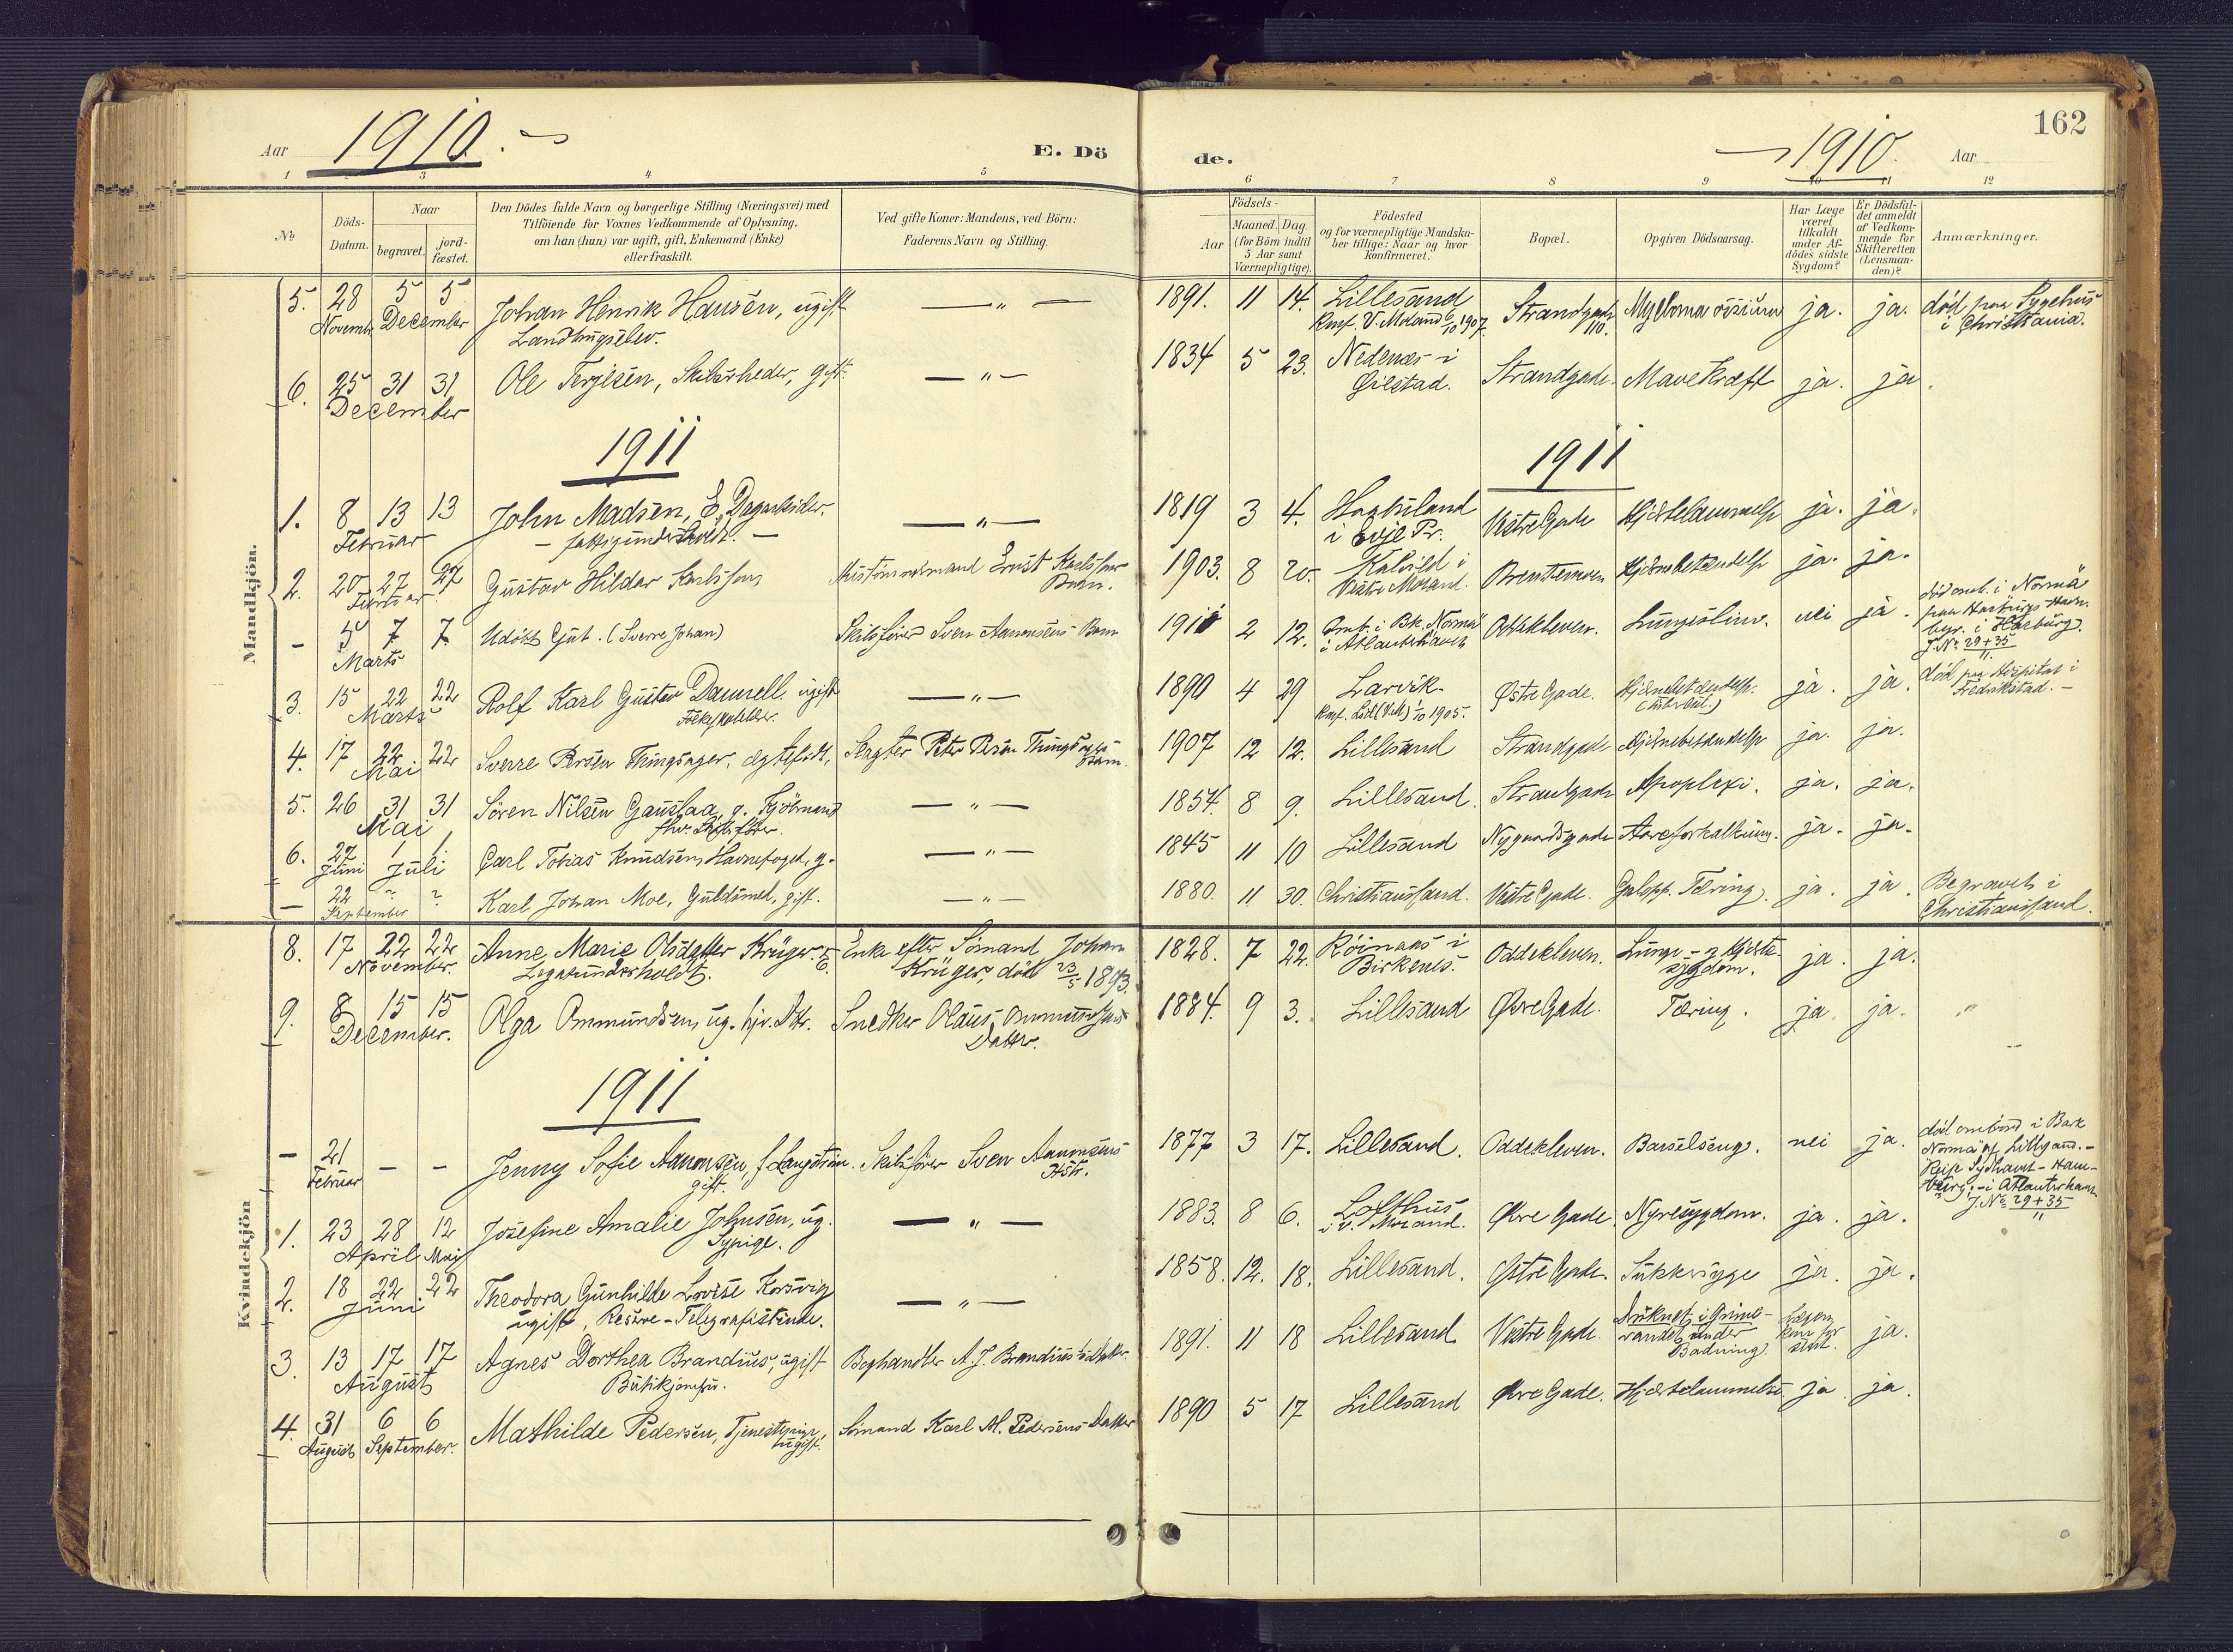 Aar 1910.
E. Dö
de.
1910. Aar
162
1 3 4 5
6 7 8 9 10 11 12
№
Döds-Datum.
Naar
begravet.
jord-fæstet.
Den Dödes fulde Navn og borgerlige Stilling (Næringsvei) med
Tilföiende for Voxnes Vedkommende af Oplysning,
om han (hun) var ugift, gift, Enkemand (Enke)
eller fraskilt.
Ved gifte Koner: Mandens, ved Börn:
Faderens Navn og Stilling.
Födsels-
Aar
Maaned. Dag.
(for Börn indtil
5 Aar samt
Værnepligtige).
Födested
og for værnepligtige Mandska-
ber tillige: Naar og hvor
konfirmeret.
Bopæl.
Opgiven Dödsaarsag.
Har Læge
været
tilkaldt
under Af-
dödes sidste
Sygdom?
Er Dödsfal-
det anmeldt
af Vedkom-
mende for
Skifteretten
(Lensman-
den)?
Anmærkninger.
Mandkjön.
5. 28 5 5 Johan Henrik Hansen, ugift — " — 1891. 11 14. Lillesand Strandgade Myeloma ossium ja. ja. död paa Sygehus
Novemb. December Landbrugselev. Knf. V. Moland 6/10 1907. 110. i Christiania.
6. 25 31 31 Ole Terjesen, Skibsrheder, gift. — " — 1834 5 23. Nedenæs i Strandgade. Mavekræft ja. ja.
December Öiestad.
1911
1911
1. 8 13 13 John Madsen, E., Dagarbeider. — " — 1819 3 4. i Evje Pr. Vestre Gade Hjertelammelse ja. ja.
Februar — fattigunderstödt. —
2. 20 27 27 Gustav Hildar Karlsson Ernst Karlssons 1903. 8 20. Kalvild i Hjernebetændelse ja. ja.
Februar Barn. Vestre Moland.
- 5 7 7. Udöbt Gut. (Sverre Johan) Skibsförer Sven Aanonsens Barn 1911 2 12. Omb. i Bk. Norma Oddekleven. nei ja. död omb. i Norma
Marts i Atlanterhavet paa Harburgs Havn.
begr. i Harburg.
J. № 29+35/11.
3. 15 22 22 Rolf Karl Gustav Dannell, ugift — " — 1890 4 29 Larvik. Östre Gade. Hjernebetændelse. ja. ja. död paa Hospital i
Marts Knf. 1/10 1905. Fredrikstad. —
4. 17 22 22 Sverre Persen Tringsager, ægtefödt, Slagter Peter Persen 1907 12 12. Lillesand Strandgade Hjernebetændelse ja. ja.
Mai Barn.
5. 26 31 31 Sören Nilsen Gauslaa, g. — " — 1854. 8 9. Lillesand. Strandgade Apoplexi. ja. ja.
Mai fhv. Skibsförer.
6. 27 1 1 Carl Tobias Knudsen, Havnefoged, g. — " — 1845 11 10 Lillesand Nygaardsgade Aareforkalkning. ja. ja.
Juni Juli
— 22 ? ? Karl Johan Moe, Guldsmed, gift. — " — 1880. 11 30. Christianssand. Vestre Gade. Galopp. Tæring. ja. ja. Begravet i
September Christianssand.
Kvindekjön
8. 17 22 22 Anne Marie Olsdatter Krüger. E. Enke efter Sömand Johan 1828. 7 22. Röinaas i Oddekleven. Lunge- og Hjerte- ja. ja.
November. Legatunderholdt. Krüger, död 23/5 1893. Birkenes. sygdom.
9. 8 15 15 Olga Ommundsen, ug. hjv. Dtr. Snedker Olaus Ommundsens 1884. 9 3. Lillesand Övre Gade. Tæring. ja. ja. "
December. Datter.
1911
— 21 — — Jenny Sofie Aanonsen, f. Langström. Skibsförer Sven Aanonsens 1877 3 17. Lillesand. Oddekleven. Barselseng. nei ja. död ombord i Bark
Februar gift. Hstr. Norma af Lillesand. -
Reise Sydhavet - Ham-
burg, - i Atlanterhavet
J. № 29+35/11
1. 23 28 12 Josefine Amalie Johnsen, ug. — " — 1883. 8 6. Lofthus Övre Gade. Nyresygdom. ja. ja.
April Maj Sypige. i V. Moland.
2. 18 22 22 Theodora Gunhilde Lovise Korsvig — " — 1858. 12. 18. Lillesand. Östre Gade. Sukkersyge ja. ja.
Juni ugift, Reserve-Telegrafistinde.
3. 13 17 17 Agnes Dorthea Brandius, ugift Boghandler A. J. Brandius's Datter. 1891. 11 18 Lillesand Vestre Gade. Druknet i Grims- Lægen ja.
August Butikjomfru. vandet under kom for
Badning. sent.
4. 31 6 6 Mathilde Pedersen, Tjenestepige, Sömand Karl M. Pedersens Datter 1890 5 17 Lillesand Övre Gade. Hjertelammelse ja. ja.
August September. ugift.